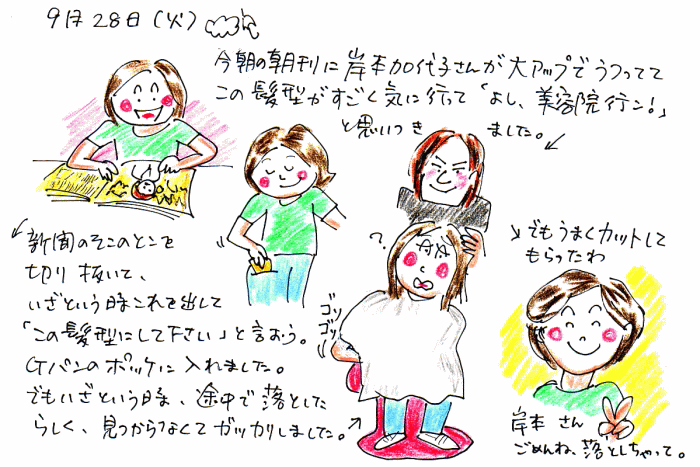 9月28日(火)
今朝の朝刊に岸本加代子さんが大アップでうつってて
この髪型がすごく気に行って「よし、美容院行こ!」
と思いつきました。
新聞のそこのとこを
切り抜いて、
いざという時これを出して
「この髪型にして下さい」と言おう。
Gパンのポッケに入れました。
でもいざという時、途中で落とした
らしく、見つからなくてガッカリしました。
?
ゴソ
ゴソ
でもうまくカットして
もらったわ
岸本さん
ごめんね、落としちゃって。